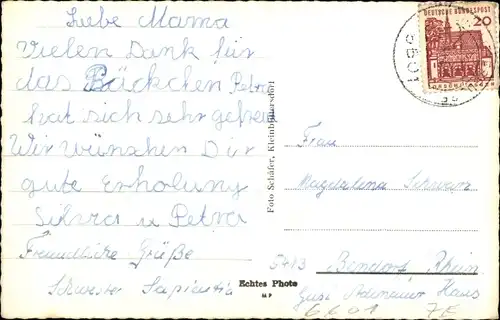 Liebe Mama
Vielen Dank für
das Päckchen Petra
hat sich sehr gefreut
Wir wünschen Dir
gute Erholung
Silvia u Petra
Freundliche Grüße
Schwester Sapientia
Foto Schäfer, Kleinbüllersdorf
Echtes Photo
MP
DEUTSCHE BUNDESPOST
20
5501
Frau
Magdalena Schwarz
5413 Bendorf, Rhein
Haus
6601 7E